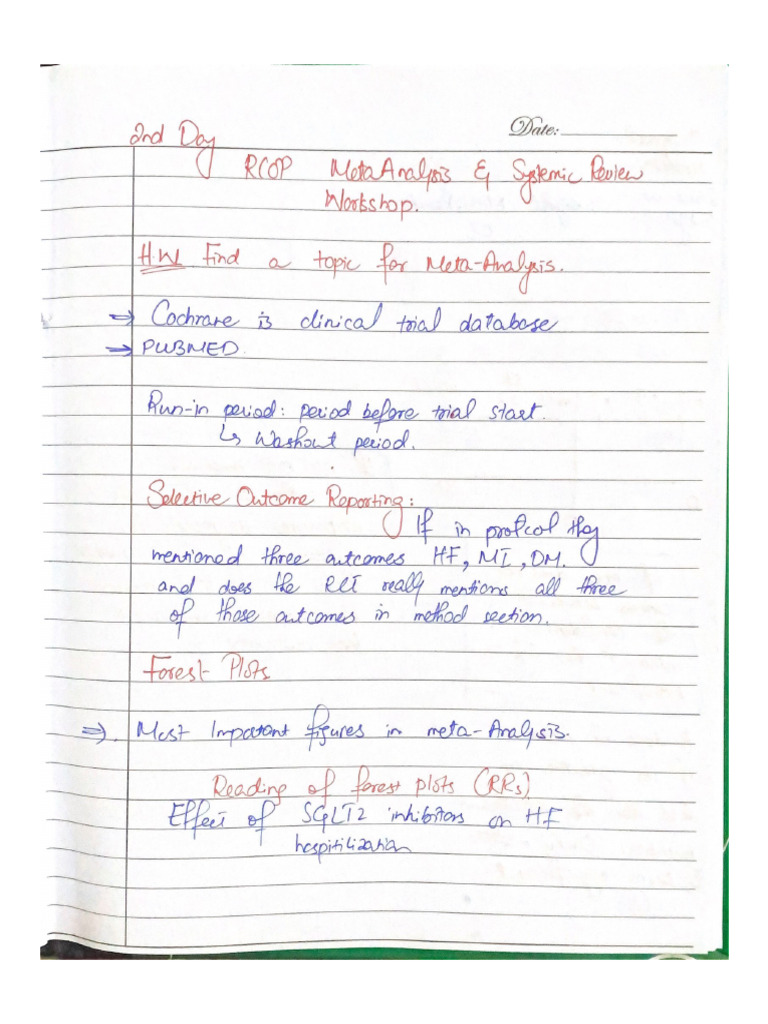 2nd Day
Date:
RCOP Meta Analysis & Systemic Review
Workshop.
H.W Find a topic for Meta-Analysis.
⇒ Cochrane is clinical trial database
→ PUBMED
Run-in period: period before trial start.
↳ Washout period.
Selective Outcome Reporting:
If in protcol they
mentioned three outcomes HF, MI, DM.
and does the RCT really mentions all three
of those outcomes in method section.
Forest Plots
⇒. Most Important figures in meta-Analysis.
Reading of forest plots (RRs)
Effect of SGLT2 inhibitors on HF
hospitilization